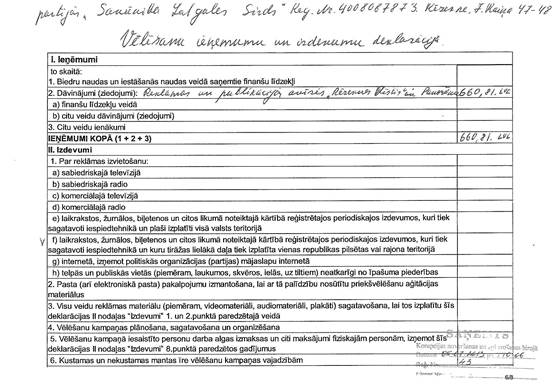 partijas „Saimnieka Latgales Sirds" Reg. Nr. 40008067873. Rēzekne, F. Kaiņa 47-48
Vēlēšanu ieņēmumu un izdevumu deklarācija.
I. Ieņēmumi
to skaitā:
1. Biedru naudas un iestāšanās naudas veidā saņemtie finanšu līdzekļi
2. Dāvinājumi (ziedojumi): Reklāmas un publikācijas avīzēs „Rēzeknes Vēstis" un Panorāma 660,81. LVL
a) finanšu līdzekļu veidā
b) citu veidu dāvinājumi (ziedojumi)
3. Citu veidu ienākumi
IEŅĒMUMI KOPĀ (1 + 2 + 3) 660,81. LVL
II. Izdevumi
1. Par reklāmas izvietošanu:
a) sabiedriskajā televīzijā
b) sabiedriskajā radio
c) komerciālajā televīzijā
d) komerciālajā radio
e) laikrakstos, žurnālos, biļetenos un citos likumā noteiktajā kārtībā reģistrētajos periodiskajos izdevumos, kuri tiek
sagatavoti iespiedtehnikā un plaši izplatīti visā valsts teritorijā
v f) laikrakstos, žurnālos, biļetenos un citos likumā noteiktajā kārtībā reģistrētajos periodiskajos izdevumos, kuri tiek
sagatavoti iespiedtehnikā un kuru tirāžas lielākā daļa tiek izplatīta vienas republikas pilsētas vai rajona teritorijā
g) internetā, izņemot politiskās organizācijas (partijas) mājaslapu internetā
h) telpās un publiskās vietās (piemēram, laukumos, skvēros, ielās, uz tiltiem) neatkarīgi no īpašuma piederības
2. Pasta (arī elektroniskā pasta) pakalpojumu izmantošana, lai ar tā palīdzību nosūtītu priekšvēlēšanu aģitācijas
materiālus
3. Visu veidu reklāmas materiālu (piemēram, videomateriāli, audiomateriāli, plakāti) sagatavošana, lai tos izplatītu šīs
deklarācijas II nodaļas "Izdevumi" 1. un 2.punktā paredzētajā veidā
4. Vēlēšanu kampaņas plānošana, sagatavošana un organizēšana
5. Vēlēšanu kampaņā iesaistīto personu darba algas izmaksas un citi maksājumi fiziskajām personām, izņemot šīs
deklarācijas II nodaļas "Izdevumi" 8.punktā paredzētos gadījumus
6. Kustamas un nekustamas mantas īre vēlēšanu kampaņas vajadzībām
SAŅEMTS
Korupcijas novēršanas un apkarošanas birojā
68